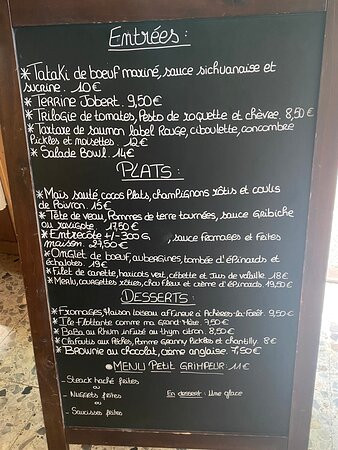 Entrées :
* Tataki de boeuf mariné, sauce sichuanaise et
sucrine. 10€
* Terrine Jobert. 9,50€
* Trilogie de tomates, Pesto de roquette et chèvre. 8,50€
* Tartare de saumon label Rouge, ciboulette, concombre
Pickles et noisettes. 12€
* Salade Bowl. 14€
PLATS :
* Maïs sauté, cocos Plats, champignons rôtis et coulis
de Poivron. 15€
* Tête de veau, Pommes de terre tournées, sauce Gribiche
ou ravigote 17,50€
* Entrecôte +/- 300 G, sauce fromages et frites
maison. 27,50€
* Onglet de boeuf, aubergines, tombée d'épinards et
échalotes 19€
* Filet de canette, haricots vert, cébette et Jus de volaille 18€
* Merlu, courgettes rôties, chou fleur et crème d'épinards 19,50€
DESSERTS :
* Fromages, Maison Loiseau affineur à Achères-la-Forêt. 9,50€
* Ile Flottante comme ma Grand-Mère. 7,50€
* BaBa au Rhum infusé au thym citron. 8,50€
* Clafoutis aux Pêches, Pomme Granny Pickles et chantilly. 8€
* Brownie au chocolat, crème anglaise. 7,50€
MENU Petit GRIMPEUR : 11€
- Steack haché frites
ou
- Nuggets frites
En dessert : Une glace
ou
- Saucisses frites